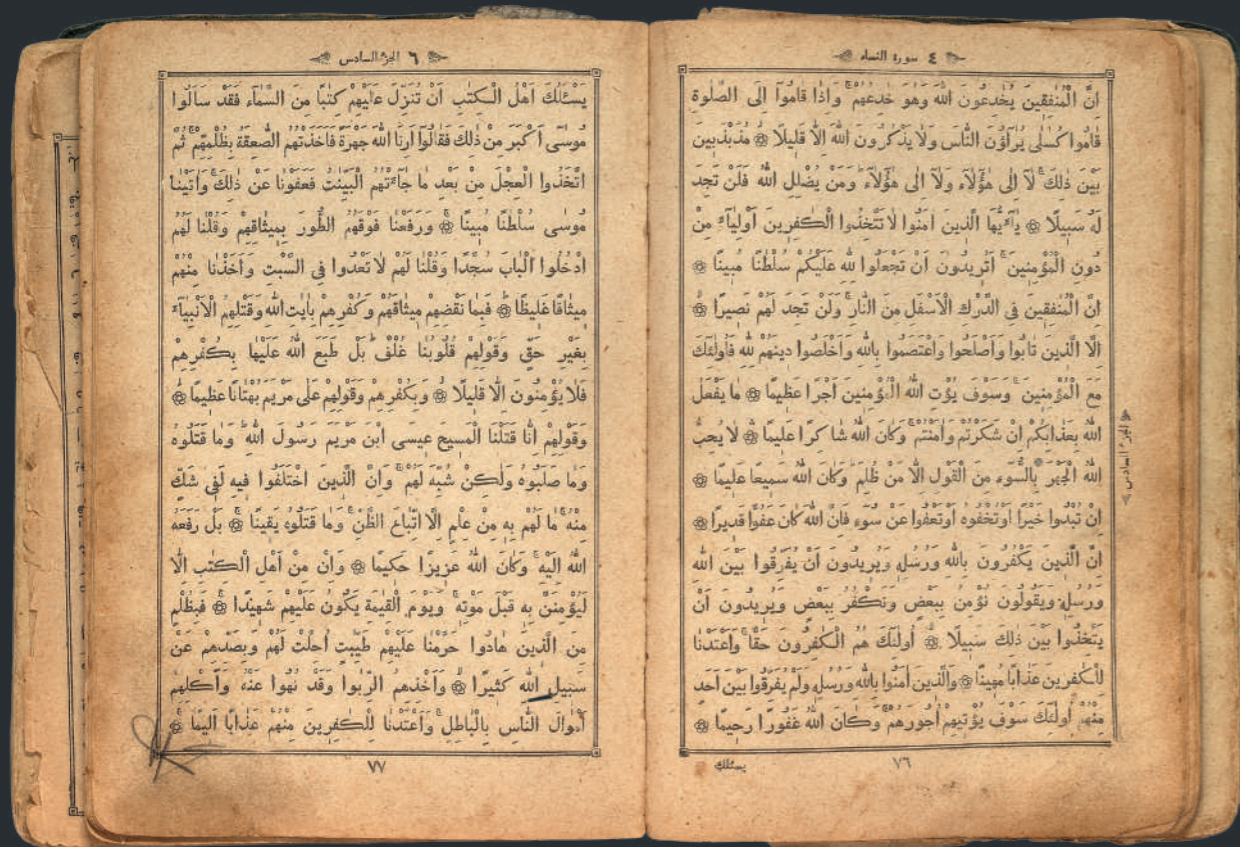 ٤ سورة النساء
اِنَّ الْمُنٰفِقِينَ يُخٰدِعُونَ اللّٰهَ وَهُوَ خٰدِعُهُمْ وَاِذَا قَامُوٓا اِلَى الصَّلٰوةِ
قَامُوا كُسٰالٰى يُرَاؤُنَ النَّاسَ وَلَا يَذْكُرُونَ اللّٰهَ اِلَّا قَلِيلًا ۞ مُذَبْذَبِينَ
بَيْنَ ذٰلِكَ لَٓا اِلٰى هٰٓؤُلَٓاءِ وَلَٓا اِلٰى هٰٓؤُلَٓاءِ وَمَنْ يُضْلِلِ اللّٰهُ فَلَنْ تَجِدَ
لَهُ سَبِيلًا ۞ يَٓا اَيُّهَا الَّذِينَ اٰمَنُوا لَا تَتَّخِذُوا الْكٰفِرِينَ اَوْلِيَٓاءَ مِنْ
دُونِ الْمُؤْمِنِينَ اَتُرِيدُونَ اَنْ تَجْعَلُوا لِلّٰهِ عَلَيْكُمْ سُلْطٰنًا مُبِينًا ۞
اِنَّ الْمُنٰفِقِينَ فِى الدَّرْكِ الْاَسْفَلِ مِنَ النَّارِ وَلَنْ تَجِدَ لَهُمْ نَصِيرًا ۞
اِلَّا الَّذِينَ تَابُوا وَاَصْلَحُوا وَاعْتَصَمُوا بِاللّٰهِ وَاَخْلَصُوا دِينَهُمْ لِلّٰهِ فَاُولٰٓئِكَ
مَعَ الْمُؤْمِنِينَ وَسَوْفَ يُؤْتِ اللّٰهُ الْمُؤْمِنِينَ اَجْرًا عَظِيمًا ۞ مَا يَفْعَلُ
اللّٰهُ بِعَذَابِكُمْ اِنْ شَكَرْتُمْ وَاٰمَنْتُمْ وَكَانَ اللّٰهُ شَاكِرًا عَلِيمًا ۞ لَا يُحِبُّ
اللّٰهُ الْجَهْرَ بِالسُّٓوءِ مِنَ الْقَوْلِ اِلَّا مَنْ ظُلِمَ وَكَانَ اللّٰهُ سَمِيعًا عَلِيمًا ۞
اِنْ تُبْدُوا خَيْرًا اَوْ تُخْفُوهُ اَوْ تَعْفُوا عَنْ سُٓوءٍ فَاِنَّ اللّٰهَ كَانَ عَفُوًّا قَدِيرًا ۞
اِنَّ الَّذِينَ يَكْفُرُونَ بِاللّٰهِ وَرُسُلِهِ وَيُرِيدُونَ اَنْ يُفَرِّقُوا بَيْنَ اللّٰهِ
وَرُسُلِهِ وَيَقُولُونَ نُؤْمِنُ بِبَعْضٍ وَنَكْفُرُ بِبَعْضٍ وَيُرِيدُونَ اَنْ
يَتَّخِذُوا بَيْنَ ذٰلِكَ سَبِيلًا ۞ اُولٰٓئِكَ هُمُ الْكٰفِرُونَ حَقًّا وَاَعْتَدْنَا
لِلْكٰفِرِينَ عَذَابًا مُهِينًا ۞ وَالَّذِينَ اٰمَنُوا بِاللّٰهِ وَرُسُلِهِ وَلَمْ يُفَرِّقُوا بَيْنَ اَحَدٍ
مِنْهُمْ اُولٰٓئِكَ سَوْفَ يُؤْتِيهِمْ اُجُورَهُمْ وَكَانَ اللّٰهُ غَفُورًا رَحِيمًا ۞
الجزء السادس
٧٦
يسئلك
٦ الجزء السادس
يَسْـَٔلُكَ اَهْلُ الْكِتٰبِ اَنْ تُنَزِّلَ عَلَيْهِمْ كِتٰبًا مِنَ السَّمَٓاءِ فَقَدْ سَاَلُوا
مُوسٰٓى اَكْبَرَ مِنْ ذٰلِكَ فَقَالُوٓا اَرِنَا اللّٰهَ جَهْرَةً فَاَخَذَتْهُمُ الصّٰعِقَةُ بِظُلْمِهِمْ ثُمَّ
اتَّخَذُوا الْعِجْلَ مِنْ بَعْدِ مَا جَٓاءَتْهُمُ الْبَيِّنٰتُ فَعَفَوْنَا عَنْ ذٰلِكَ وَاٰتَيْنَا
مُوسٰى سُلْطٰنًا مُبِينًا ۞ وَرَفَعْنَا فَوْقَهُمُ الطُّورَ بِمِيثٰاقِهِمْ وَقُلْنَا لَهُمُ
ادْخُلُوا الْبَابَ سُجَّدًا وَقُلْنَا لَهُمْ لَا تَعْدُوا فِى السَّبْتِ وَاَخَذْنَا مِنْهُمْ
مِيثٰاقًا غَلِيظًا ۞ فَبِمَا نَقْضِهِمْ مِيثٰاقَهُمْ وَكُفْرِهِمْ بِاٰيٰتِ اللّٰهِ وَقَتْلِهِمُ الْاَنْبِيَٓاءَ
بِغَيْرِ حَقٍّ وَقَوْلِهِمْ قُلُوبُنَا غُلْفٌ بَلْ طَبَعَ اللّٰهُ عَلَيْهَا بِكُفْرِهِمْ
فَلَا يُؤْمِنُونَ اِلَّا قَلِيلًا ۞ وَبِكُفْرِهِمْ وَقَوْلِهِمْ عَلٰى مَرْيَمَ بُهْتَانًا عَظِيمًا ۞
وَقَوْلِهِمْ اِنَّا قَتَلْنَا الْمَسِيحَ عِيسَى ابْنَ مَرْيَمَ رَسُولَ اللّٰهِ وَمَا قَتَلُوهُ
وَمَا صَلَبُوهُ وَلٰكِنْ شُبِّهَ لَهُمْ وَاِنَّ الَّذِينَ اخْتَلَفُوا فِيهِ لَفِى شَكٍّ
مِنْهُ مَا لَهُمْ بِهِ مِنْ عِلْمٍ اِلَّا اتِّبَاعَ الظَّنِّ وَمَا قَتَلُوهُ يَقِينًا ۞ بَلْ رَفَعَهُ
اللّٰهُ اِلَيْهِ وَكَانَ اللّٰهُ عَزِيزًا حَكِيمًا ۞ وَاِنْ مِنْ اَهْلِ الْكِتٰبِ اِلَّا
لَيُؤْمِنَنَّ بِهِ قَبْلَ مَوْتِهِ وَيَوْمَ الْقِيٰمَةِ يَكُونُ عَلَيْهِمْ شَهِيدًا ۞ فَبِظُلْمٍ
مِنَ الَّذِينَ هَادُوا حَرَّمْنَا عَلَيْهِمْ طَيِّبٰتٍ اُحِلَّتْ لَهُمْ وَبِصَدِّهِمْ عَنْ
سَبِيلِ اللّٰهِ كَثِيرًا ۞ وَاَخْذِهِمُ الرِّبٰوا وَقَدْ نُهُوا عَنْهُ وَاَكْلِهِمْ
اَمْوَالَ النَّاسِ بِالْبَاطِلِ وَاَعْتَدْنَا لِلْكٰفِرِينَ مِنْهُمْ عَذَابًا اَلِيمًا ۞
٧٧